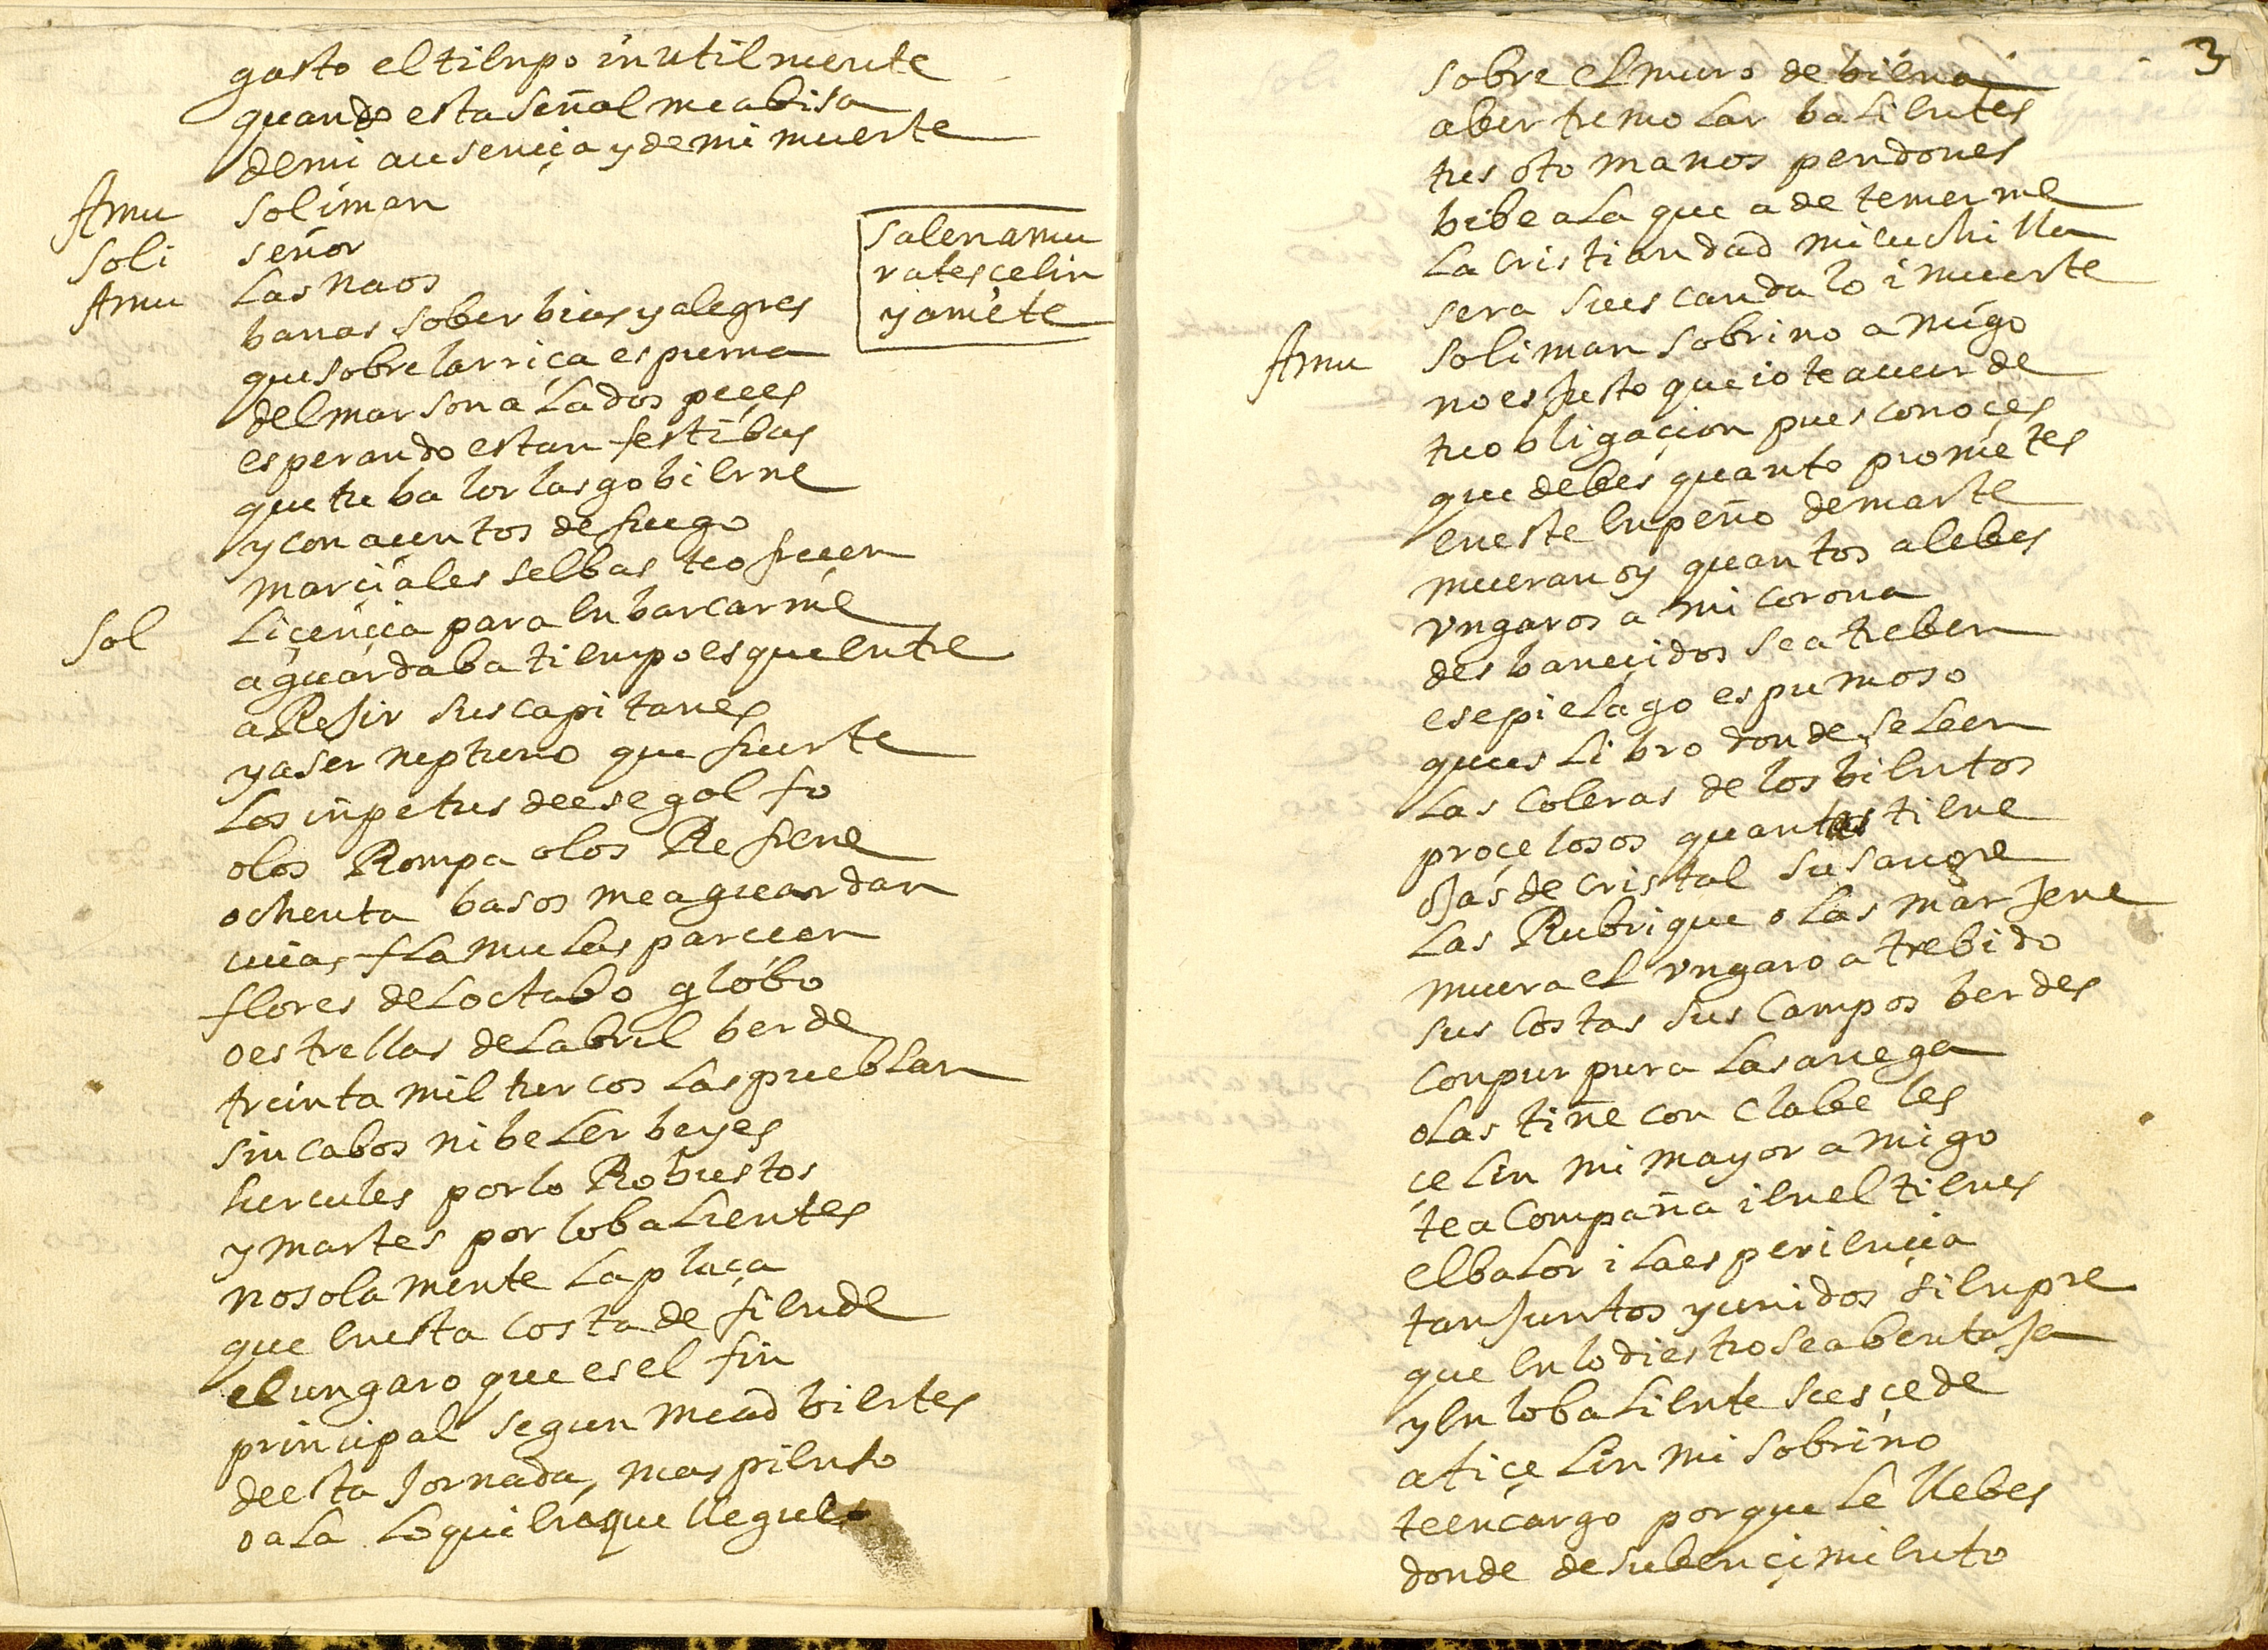 gasto el tienpo inutilmente
quando esta señal me abisa
de mi ausençia y de mi muerte
Amu soliman
Soli señor
Amu Las naos
salen amu
rates çelin
y amete
banas soberbias y alegres
que sobre la rriça espuma
del mar son alados peçes
esperando estan festibas
que tu balor las gobierne
y con acentos de fuego
marçiales selbas te ofreçen
Sol Liçençia para enbarcarme
aguardaba tienpo es que entre
a Rejir sus capitanes
y a ser neptuno que fuerte
Los inpetus de ese golfo
o los Rompa o los Refrene
ochenta basos me aguardan
cuias flamulas pareçen
flores del octabo globo
o estrellas del abril berde
treinta mil turcos las pueblan
sin cabos ni belerbeyes
hercules por lo Robustos
y martes por lo balientes
no solamente la plaça
que en esta costa defiende
el ungaro que es el fin
principal segun me adbiertes
de esta Jornada, mas pienso
o ala lo quiera que llegue
3
sobre el muro de biena
a ber tremolar balientes
tus otomanos pendones
bibe ala que a de temerme
La cristiandad mi cuchilla
sera su escandalo i muerte
Amu Soliman sobrino amigo
no es Justo que io te acuerde
tu obligaçion pues conoçes
que debes quanto prometes
en este enpeño de marte
mueran oy quantos alebes
vngaros a mi corona
desbaneçidos se atreben
ese pielago espumoso
que es Libro donde se leen
Las coleras de los bientos
proçelosos quantas tiene
ojas de cristal su sangre
Las Rubrique o las marJene
muera el vngaro atrebido
sus costas sus campos berdes
con purpura las aniega
o las tiñe con clabeles
çelin mi mayor amigo
te acompaña i en el tienes
el balor i la esperiençia
tan Juntos y unidos sienpre
que en lo diestro se abentaJa
y en lo baliente se esçede
a ti çelin mi sobrino
te encargo porque le llebes
donde de su bençimiento